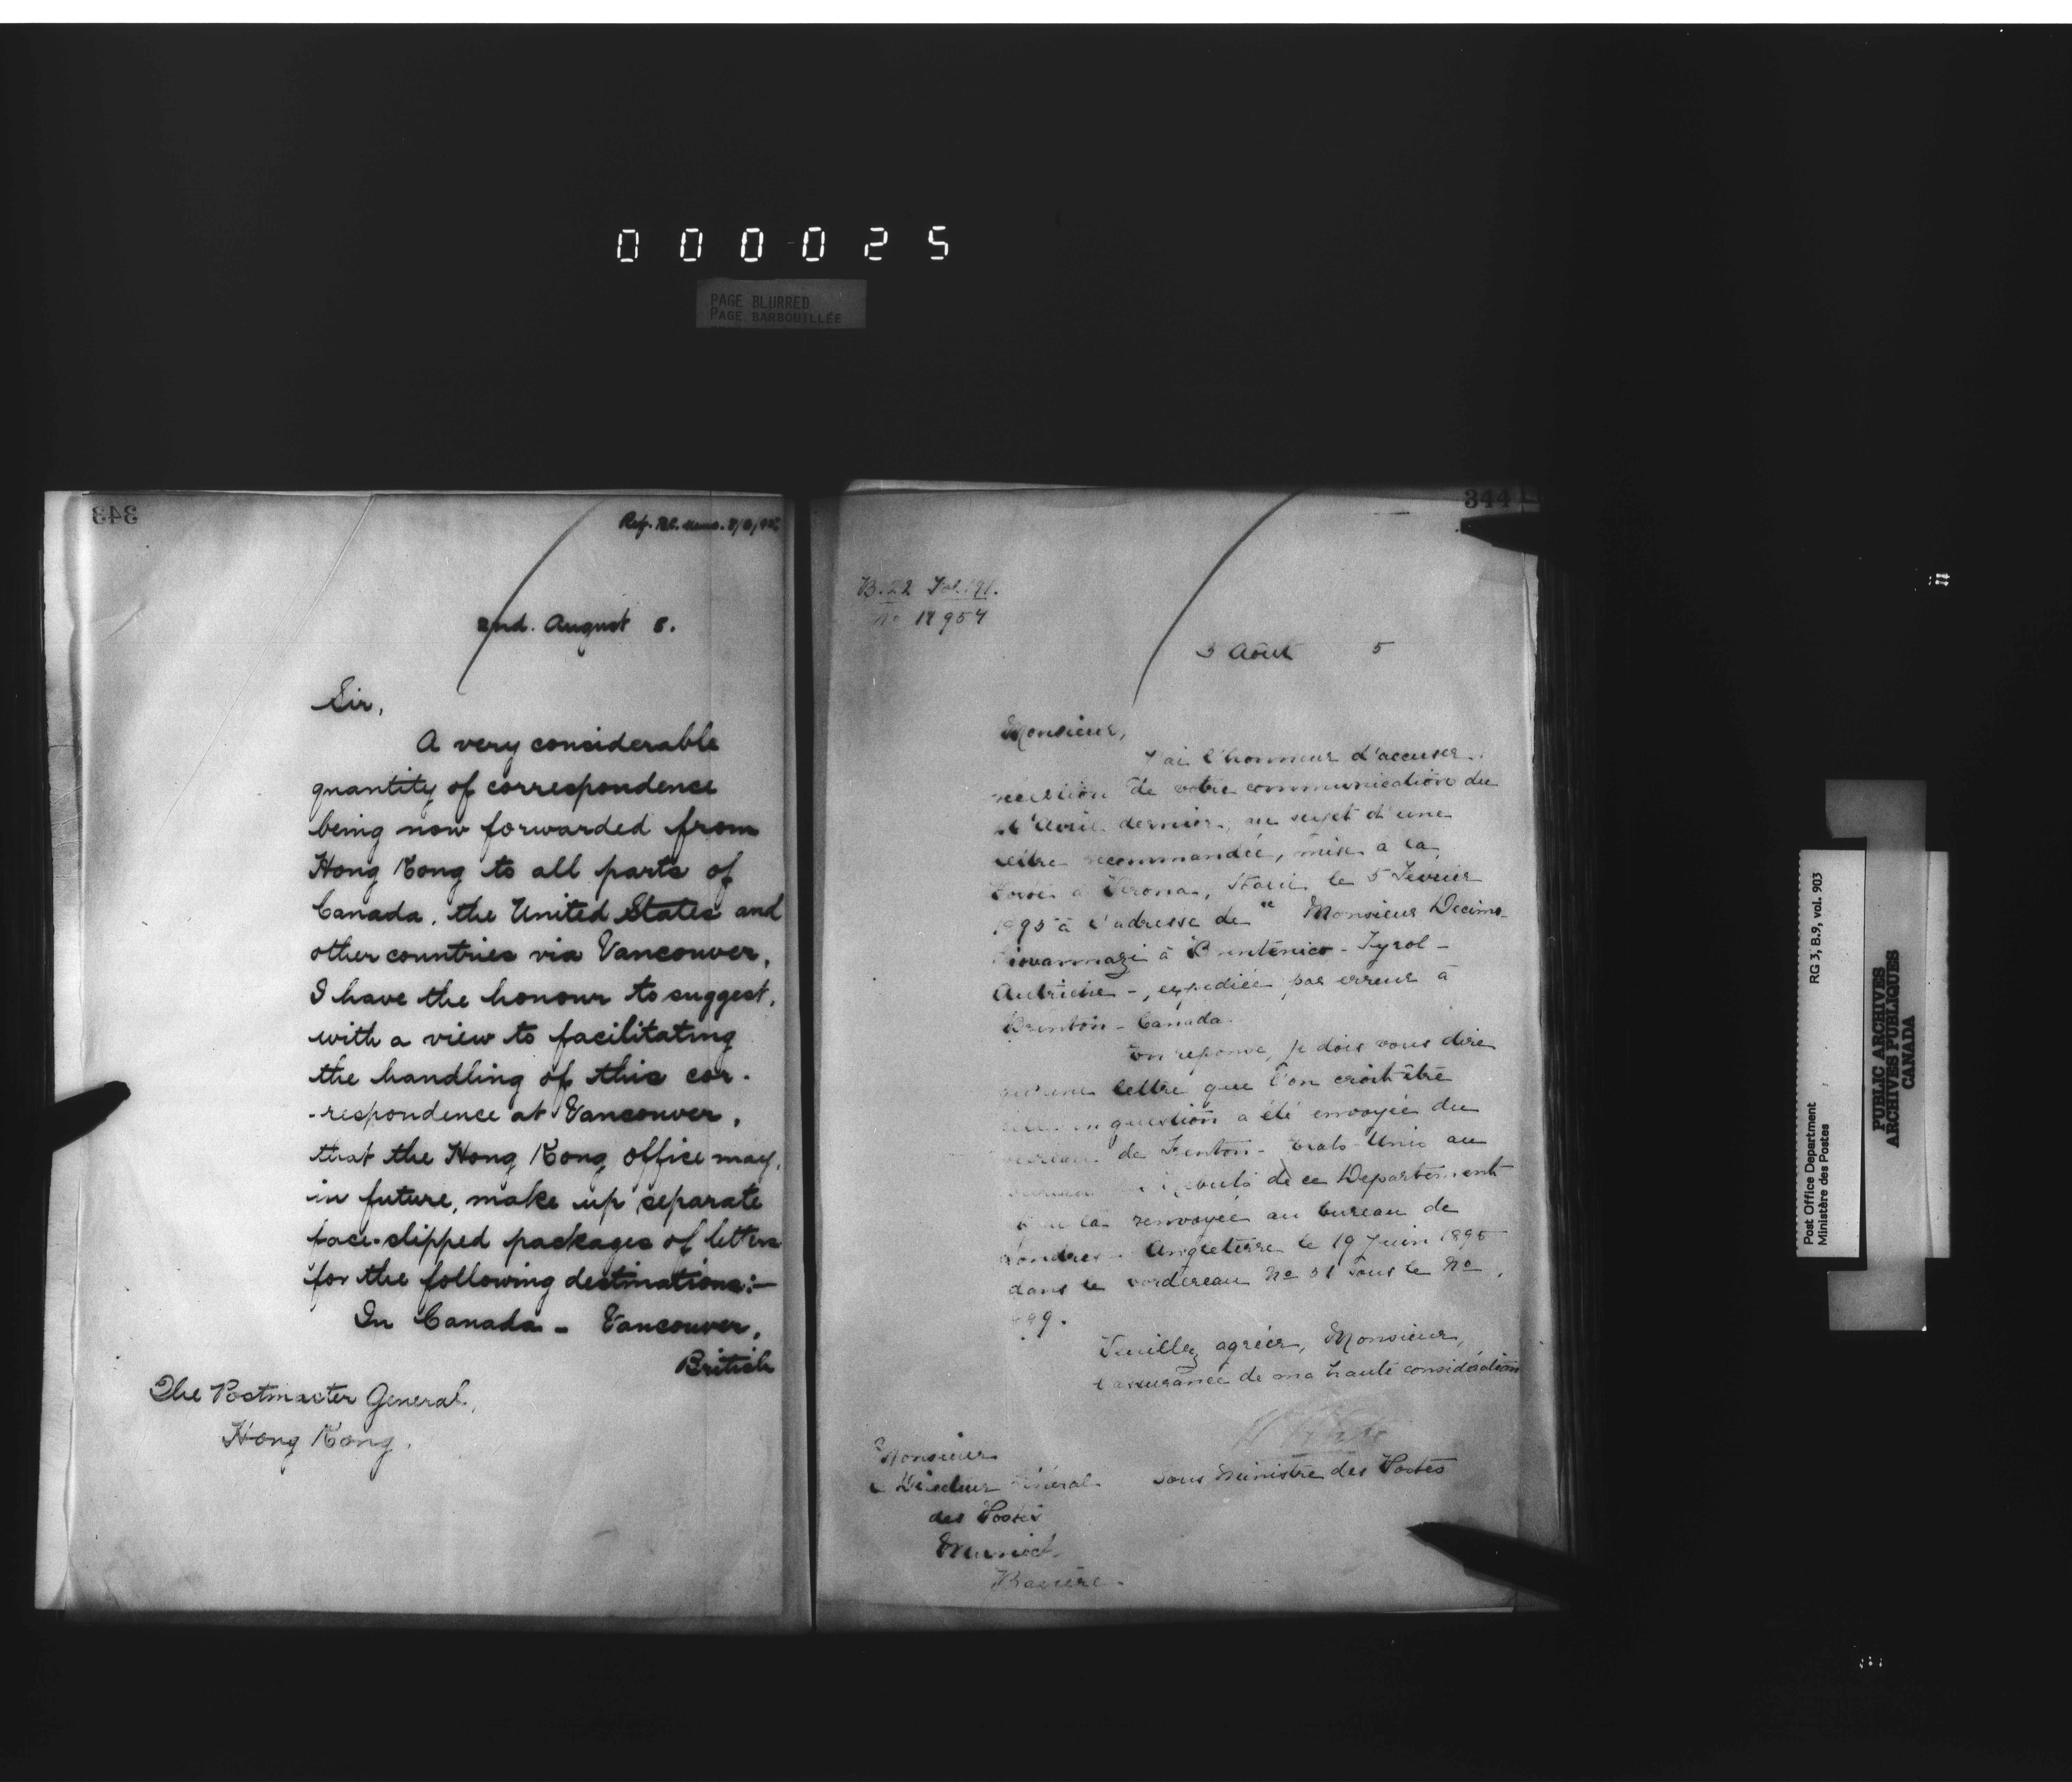 000025
PAGE BLURRED
PAGE BARBOUILLÉE
343
2nd. August 5.
Sir,
A very considerable
quantity of correspondence
being now forwarded from
Hong Kong to all parts of
Canada, the United States and
other countries via Vancouver,
I have the honour to suggest,
with a view to facilitating
the handling of this cor-
-respondence at Vancouver,
that the Hong Kong office may,
in future, make up separate
face-slipped packages of letters
for the following destinations:-
In Canada - Vancouver,
British
The Postmaster General,
Hong Kong.
344
3 Août 5
Monsieur,
J'ai l'honneur d'accuser
réception de votre communication du
Avril dernier, au sujet d'une
lettre recommandée, mise à la
à Verona, Italie, le 5 Fevrier
1895 à l'adresse de "Monsieur Decimo
à Brentonico - Tyrol -
Autriche -, expediée par erreur à
Canada.
En reponse, je dois vous dire
qu'une lettre que l'on croit être
en question a été envoyée du
bureau de Trenton - Etats-Unis au
de ce Departement
renvoyée au bureau de
Londres - Angleterre le 19 Juin 1895
dans le bordereau No 31 sous le No
Veuillez agréer, Monsieur,
l'assurance de ma haute considération
Sous Ministre des Postes
Monsieur
le Directeur Général
des Postes
Munich
Bavière.
Post Office Department
Ministère des Postes
RG 3, B.9, vol. 903
PUBLIC ARCHIVES
ARCHIVES PUBLIQUES
CANADA